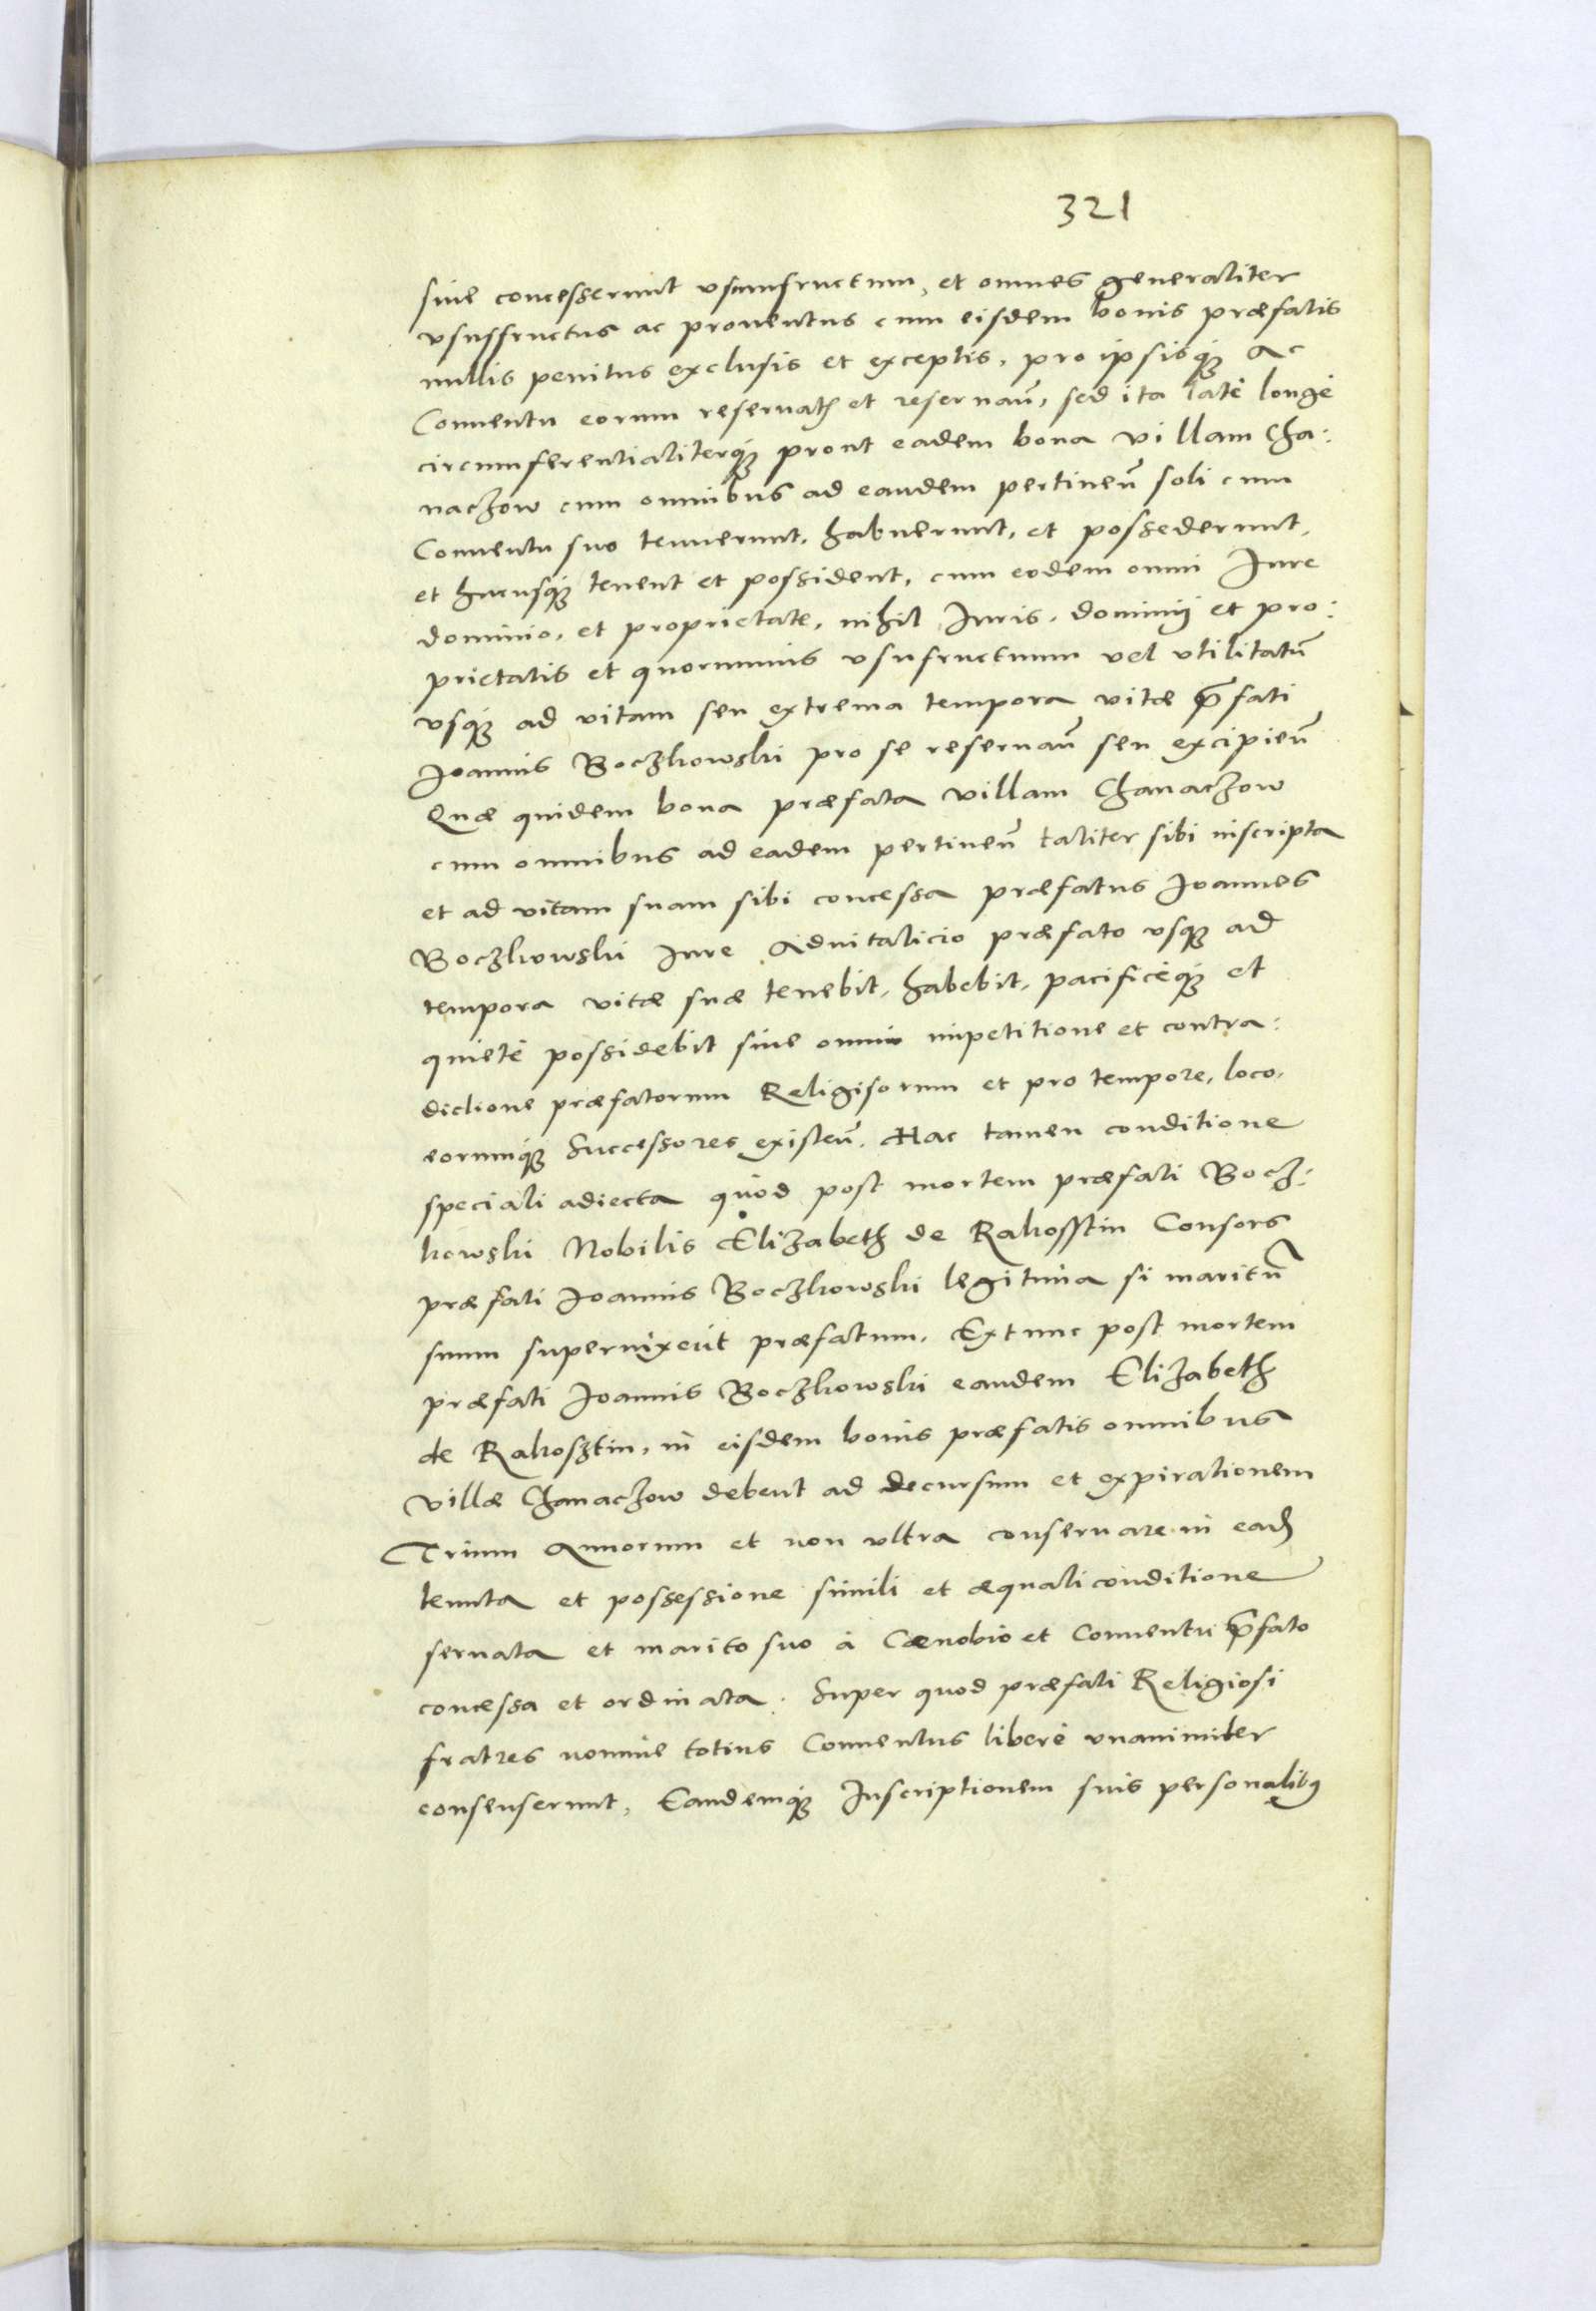 321
siue concesserunt vsumfructum, et omnes generaliter
vsusfructus ac prouentus cum eisdem bonis præfatis
nullis penitus exclusis et exceptis, pro ipsisq3 ac
Conuentu eorum reseruatis et reseruan̄, sed ita latè longè
circumferentialiterq3 prout eadem bona villam Cha:
naczow cum omnibus ad eandem pertinen̄ soli cum
Conuentu suo tenuerunt, habuerunt, et possederunt,
et hucusq3 tenent et possident, cum eodem omni Iure
dominio, et proprietate, nihil Iuris, dominij et pro:
prietatis et quorumuis vsufructuum vel vtilitatū
vsq3 ad vitam seu extrema tempora vitæ p̄fati
Joannis Boczkowski pro se reseruan̄ seu excipien̄
Quæ quidem bona præfata villam Chanaczow
cum omnibus ad eadem pertinen̄ taliter sibi inscripta
et ad vitam suam sibi concessa præfatus Joannes
Boczkowski Iure Aduitalicio præfato vsq3 ad
tempora vitæ suæ tenebit, habebit, pacificèq3 et
quietè possidebit sine omni impetitione et contra:
dictione præfatorum Religisorum et pro tempore, loco,
eorumq3 Successores existen̄. Hac tamen conditione
speciali adiecta quòd post mortem præfati Bocz:
kowski Nobilis Elizabeth de Rakosstin Consors
præfati Joannis Boczkowski legitima si maritū
suum superuixerit præfatum. Extunc post mortem
præfati Joannis Boczkowski eandem Elizabeth
de Rakosztin, in eisdem bonis præfatis omnibus
villæ Chanaczow debent ad decursum et expirationem
Trium Annorum et non vltra conseruare in ead̄
tenuta et possessione simili et æquali conditione
seruata et marito suo à Cænobio et Conuentu p̄fato
concessa et ordinata. Super quod præfati Religiosi
fratres nomine totius Conuentus liberè vnanimiter
consenserunt, Eandemq3 Inscriptionem suis personalib9